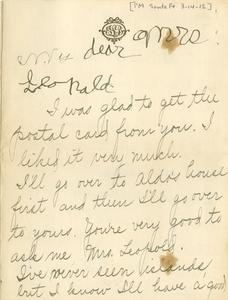 [PM Santa Fe 3-14-12]
My dear Mrs.
Leopold
I was glad to get the
postal card from you. I
liked it very much.
I'll go over to Aldos house
first and then I'll go over
to yours. Youre very good to
ask me Mrs. Leopold.
I've never seen
but I know I'll have a good